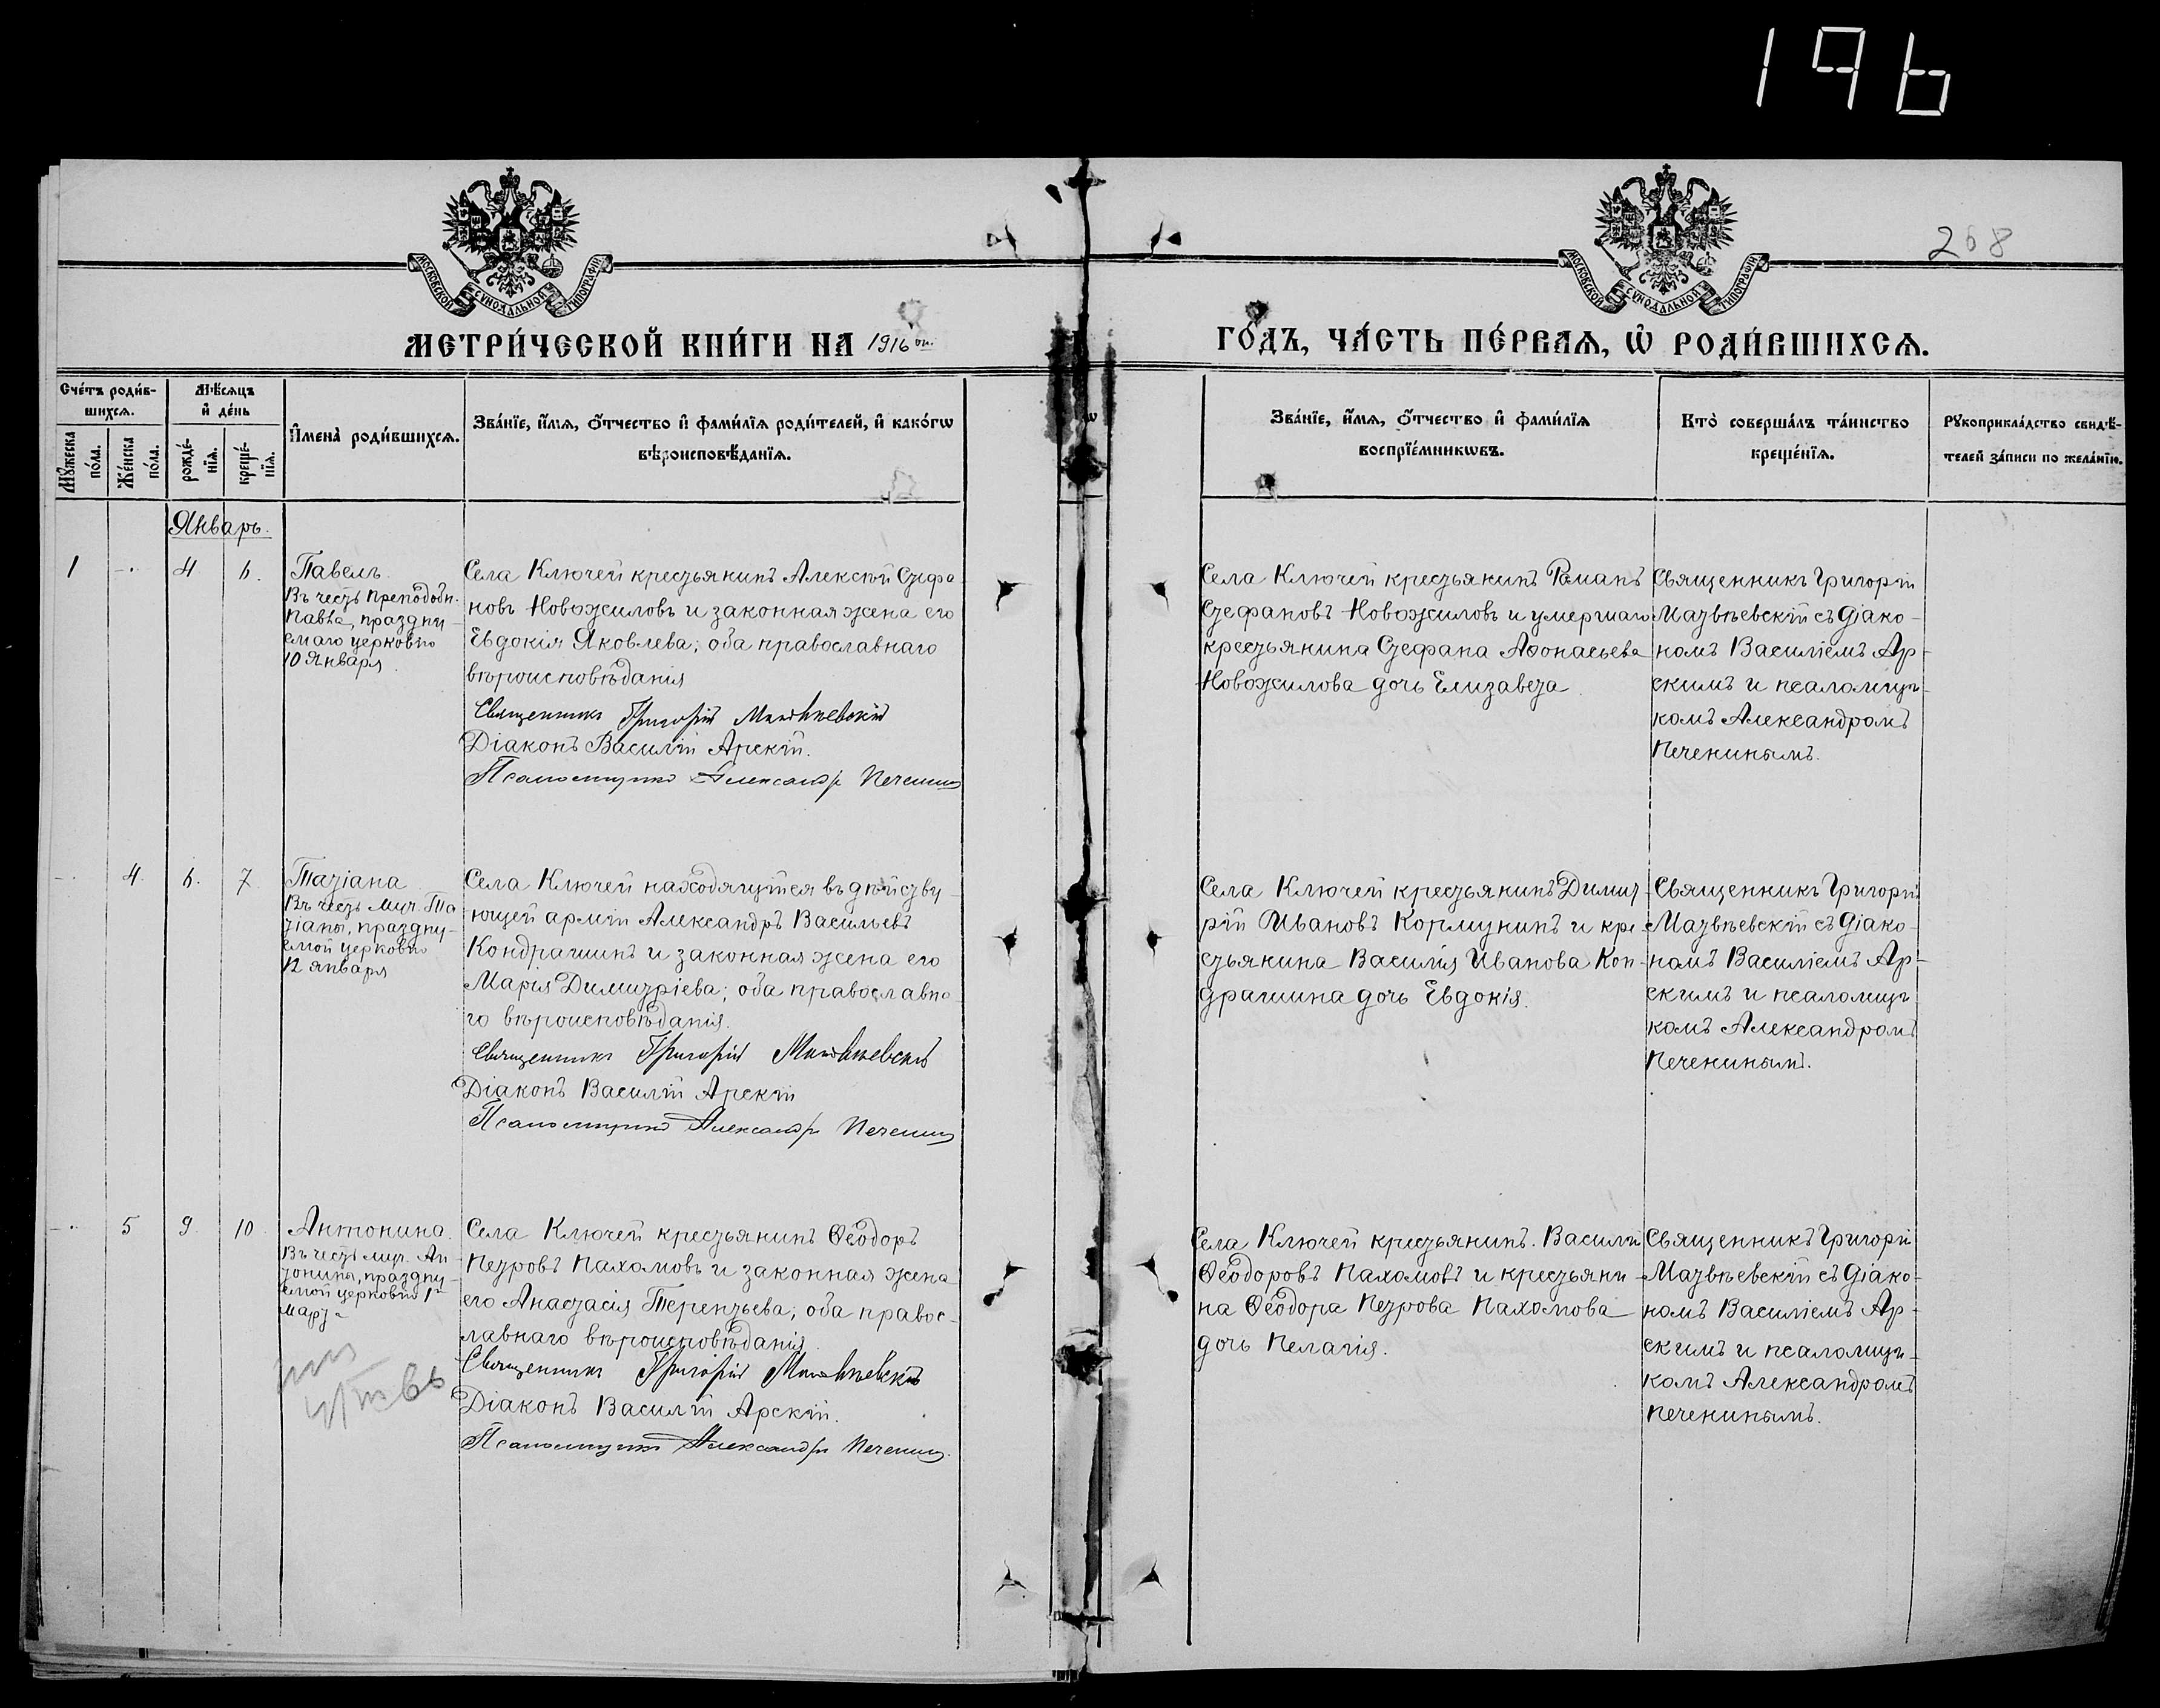 196
268
МОСКОВСКОЙ СѴНОДАЛЬНОЙ ТИПОГРАФІИ
МОСКОВСКОЙ СѴНОДАЛЬНОЙ ТИПОГРАФІИ
МЕТРИ́ЧЕСКОЙ КНИ́ГИ НА 1916 ой.
ГО́ДЪ, ЧА́СТЬ ПЕ́РВАЯ, Ѿ РОДИ́ВШИХСЯ.
Сче́тъ роди́в-
шихся.
Мѣ́сяцъ
и҆ де́нь
Мꙋ́жеска по́ла.
Же́нска по́ла.
рожде́-
нїя.
креще́-
нїя.
И҆мена̀ роди́вшихся.
Зва́нїе, и҆́мя, ѻ҆́тчество и҆ фами́лїя роди́телей, и҆ како́гѡ
вѣроисповѣ́данїя.
Зва́нїе, и҆́мя, ѻ҆́тчество и҆ фами́лїя
воспрїе́мникѡвъ.
Кто̀ соверша́лъ та́инство
креще́нїя.
Рꙋкоприкла́дство свидѣ́-
телей за́писи по жела́нїю.
Январь.
1
-.
4
6.
Павелъ.
Въ честь преподобн.
Павла, праздну-
емаго церковію
10 Января.
Села Ключей крестьянинъ Алексѣй Стефа-
новъ Новожиловъ и законная жена его
Евдокія Яковлева; оба православнаго
вѣроисповѣданія
Священникъ Григорій Матвѣевскій
Діаконъ Василій Арскій.
Псаломщикъ Александръ Печенинъ
Села Ключей крестьянинъ Романъ
Стефановъ Новожиловъ и умершаго
крестьянина Стефана Аѳонасьева
Новожилова дочь Елизавета.
Священникъ Григорій
Матвѣевскій съ діако-
номъ Василіемъ Ар-
скимъ и псаломщи-
комъ Александромъ
Печенинымъ.
-.
4.
6.
7
Татіана
Въ честь муч. Та-
тіаны, праздну-
емой церковію
12 января
Села Ключей находящійся въ дѣйству-
ющей арміи Александръ Васильевъ
Кондрашинъ и законная жена его
Марія Димитріева; оба православна-
го вѣроисповѣданія.
Священникъ Григорій Матвѣевскій
Діаконъ Василій Арскій
Псаломщикъ Александръ Печенинъ
Села Ключей крестьянинъ Димит-
рій Ивановъ Кормунинъ и кре-
стьянина Василія Иванова Кон-
драшина дочь Евдокія.
Священникъ Григорій
Матвѣевскій съ діако-
номъ Василіемъ Ар-
скимъ и псаломщи-
комъ Александромъ
Печенинымъ.
-.
5
9.
10
Антонина.
Въ честь муч. Ан-
тонины, праздну-
емой церковію 1го
марта
Села Ключей крестьянинъ Ѳеодоръ
Петровъ Пахомовъ и законная жена
его Анастасія Терентьева; оба правос-
лавнаго вѣроисповѣданія.
Священникъ Григорій Матвѣевскій
Діаконъ Василій Арскій.
Псаломщикъ Александръ Печенинъ.
Села Ключей крестьянинъ Василій
Ѳеодоровъ Пахомовъ и крестьяни-
на Ѳеодора Петрова Пахомова
дочь Пелагія.
Священникъ Григорій
Матвѣевскій съ діако-
номъ Василіемъ Ар-
скимъ и псаломщи-
комъ Александромъ
Печенинымъ.